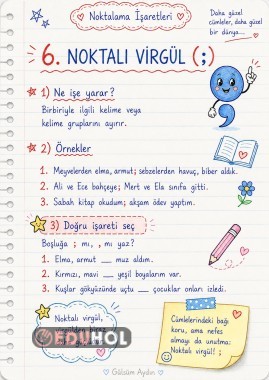 Noktalama İşaretleri
Daha güzel
cümleler, daha güzel
bir dünya...
6. NOKTALI VİRGÜL (;)
1) Ne işe yarar?
Birbiriyle ilgili kelime veya
kelime gruplarını ayırır.
2) Örnekler
1. Meyvelerden elma, armut; sebzelerden havuç, biber aldık.
2. Ali ve Ece bahçeye; Mert ve Ela sınıfa gitti.
3. Sabah kitap okudum; akşam ödev yaptım.
3) Doğru işareti seç
Boşluğa ; mı, , mı yaz?
1. Elma, armut __ muz aldım.
2. Kırmızı, mavi __ yeşil boyalarım var.
3. Kuşlar gökyüzünde uçtu __ çocuklar onları izledi.
Noktalı virgül,
EDUHOL
Cümlelerindeki bağı
koru, ama nefes
almayı da unutma:
Noktalı virgül! ;
Gülsüm Aydın